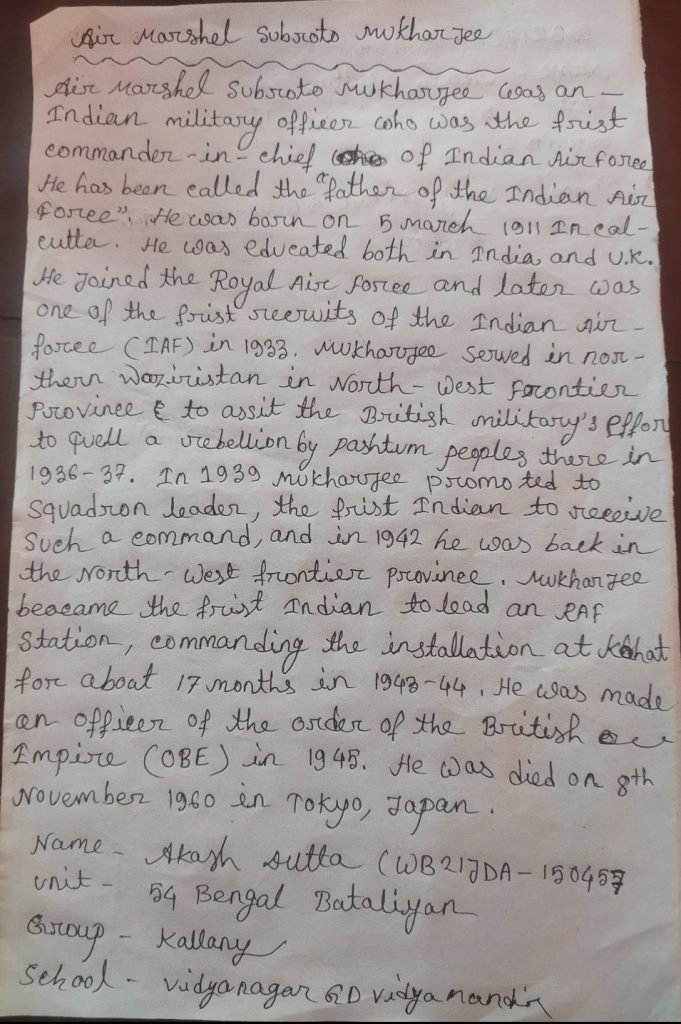 Air Marshel Subroto Mukharjee
Air Marshel Subroto Mukharjee was an -
Indian military officer who was the frist
commander-in-chief of Indian Air force
He has been called the "father of the Indian Air
Force". He was born on 5 march 1911 In cal-
cutta. He was educated both in India and U.K.
He Joined the Royal Air force and later was
one of the frist recruits of the Indian Air-
force (IAF) in 1933. Mukharjee served in nor-
thern Waziristan in North-West frontier
Province to assit the British military's Effor
to quell a rebellion by pashtum peoples there in
1936-37. In 1939 Mukharjee promoted to
Squadron leader, the frist Indian to receive
Such a command, and in 1942 he was back in
the North-West frontier province. Mukharjee
beacame the frist Indian to lead an RAF
Station, commanding the installation at Kohat
for about 17 months in 1943-44. He was made
an officer of the order of the British
Empire (OBE) in 1945. He was died on 8th
November 1960 in Tokyo, Japan.
Name - Akash Dutta (WB21JDA-150457
unit - 54 Bengal Bataliyan
Group - Kallany
School - vidyanagar GD vidyamandir